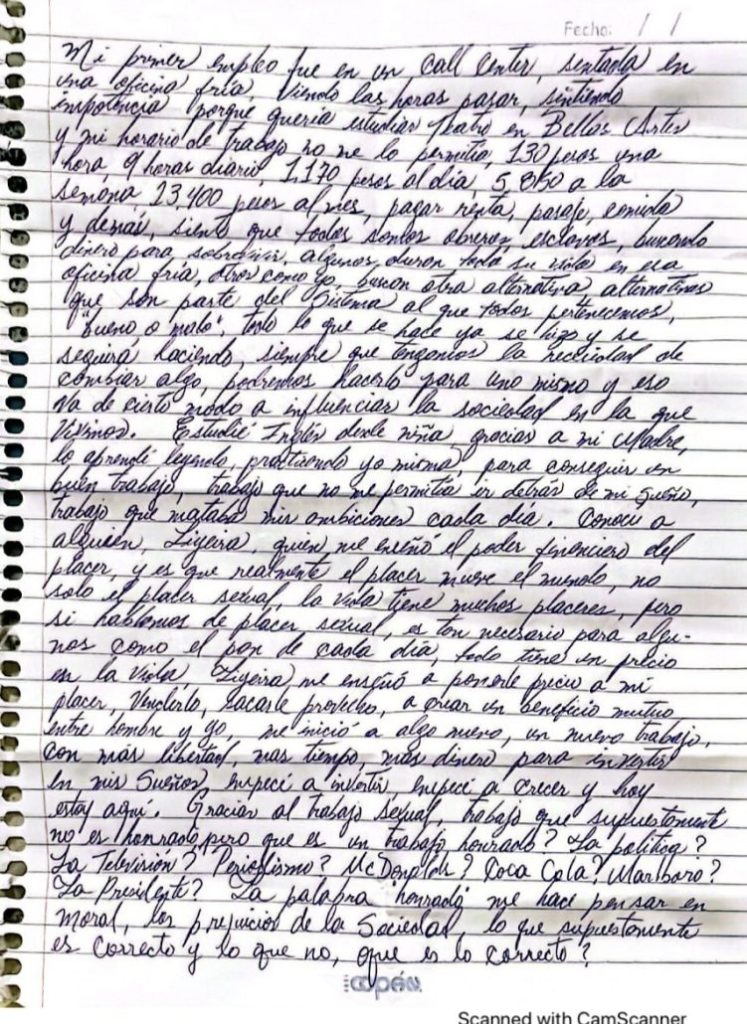 Fecha: / /
Mi primer empleo fue en un call center, sentada en
una oficina fría, viendo las horas pasar, sintiendo
impotencia porque quería estudiar Teatro en Bellas Artes
y mi horario de trabajo no me lo permitía, 130 pesos una
hora, 9 horas diario, 1,170 pesos al día, 5,850 a la
semana, 23,400 pesos al mes, pagar renta, pasaje, comida
y demás, siento que todos somos obreros, esclavos, buscando
dinero para sobrevivir, algunos duran toda su vida en esa
oficina fría, otros como yo, buscan otra alternativa, alternativas
que son parte del Sistema al que todos pertenecemos,
"bueno o malo", todo lo que se hace ya se hizo y se
seguirá haciendo, siempre que tengamos la necesidad de
cambiar algo, podremos hacerlo para uno mismo y eso
va de cierto modo a influenciar la sociedad en la que
vivimos. Estudié Inglés desde niña, gracias a mi Madre,
lo aprendí leyendo, practicando yo misma, para conseguir un
buen trabajo, trabajo que no me permitía ir detrás de mi sueño,
trabajo que mataba mis ambiciones cada día. Conocí a
alguien, Ligeira, quien me enseñó el poder financiero del
placer, y es que realmente el placer mueve el mundo, no
solo el placer sexual, la vida tiene muchos placeres, pero
si hablamos de placer sexual, es tan necesario para algu-
nos como el pan de cada día, todo tiene un precio
en la vida, Ligeira, me enseñó a ponerle precio a mi
placer, venderlo, sacarle provecho, a crear un beneficio mutuo
entre hombre y yo, me inició a algo nuevo, un nuevo trabajo,
con más libertad, mas tiempo, más dinero para invertir
en mis Sueños, empecé a invertir, empecé a crecer y hoy
estoy aquí. Gracias al trabajo sexual, trabajo que supuestamente
no es honrado, pero que es un trabajo honrado? La política?
La Televisión? Periodismo? McDonalds? Coca Cola? Marlboro?
La Presidente? La palabra "honrado" me hace pensar en
moral, los prejuicios de la Sociedad, lo que supuestamente
es correcto y lo que no, que es lo correcto?
Scanned with CamScanner